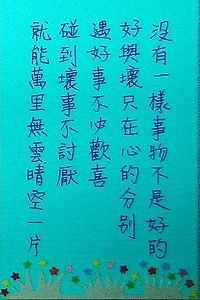 沒有一樣事物不是好的
好與壞只在心的分別
遇好事不必歡喜
碰到壞事不討厭
就能萬里無雲晴空一片